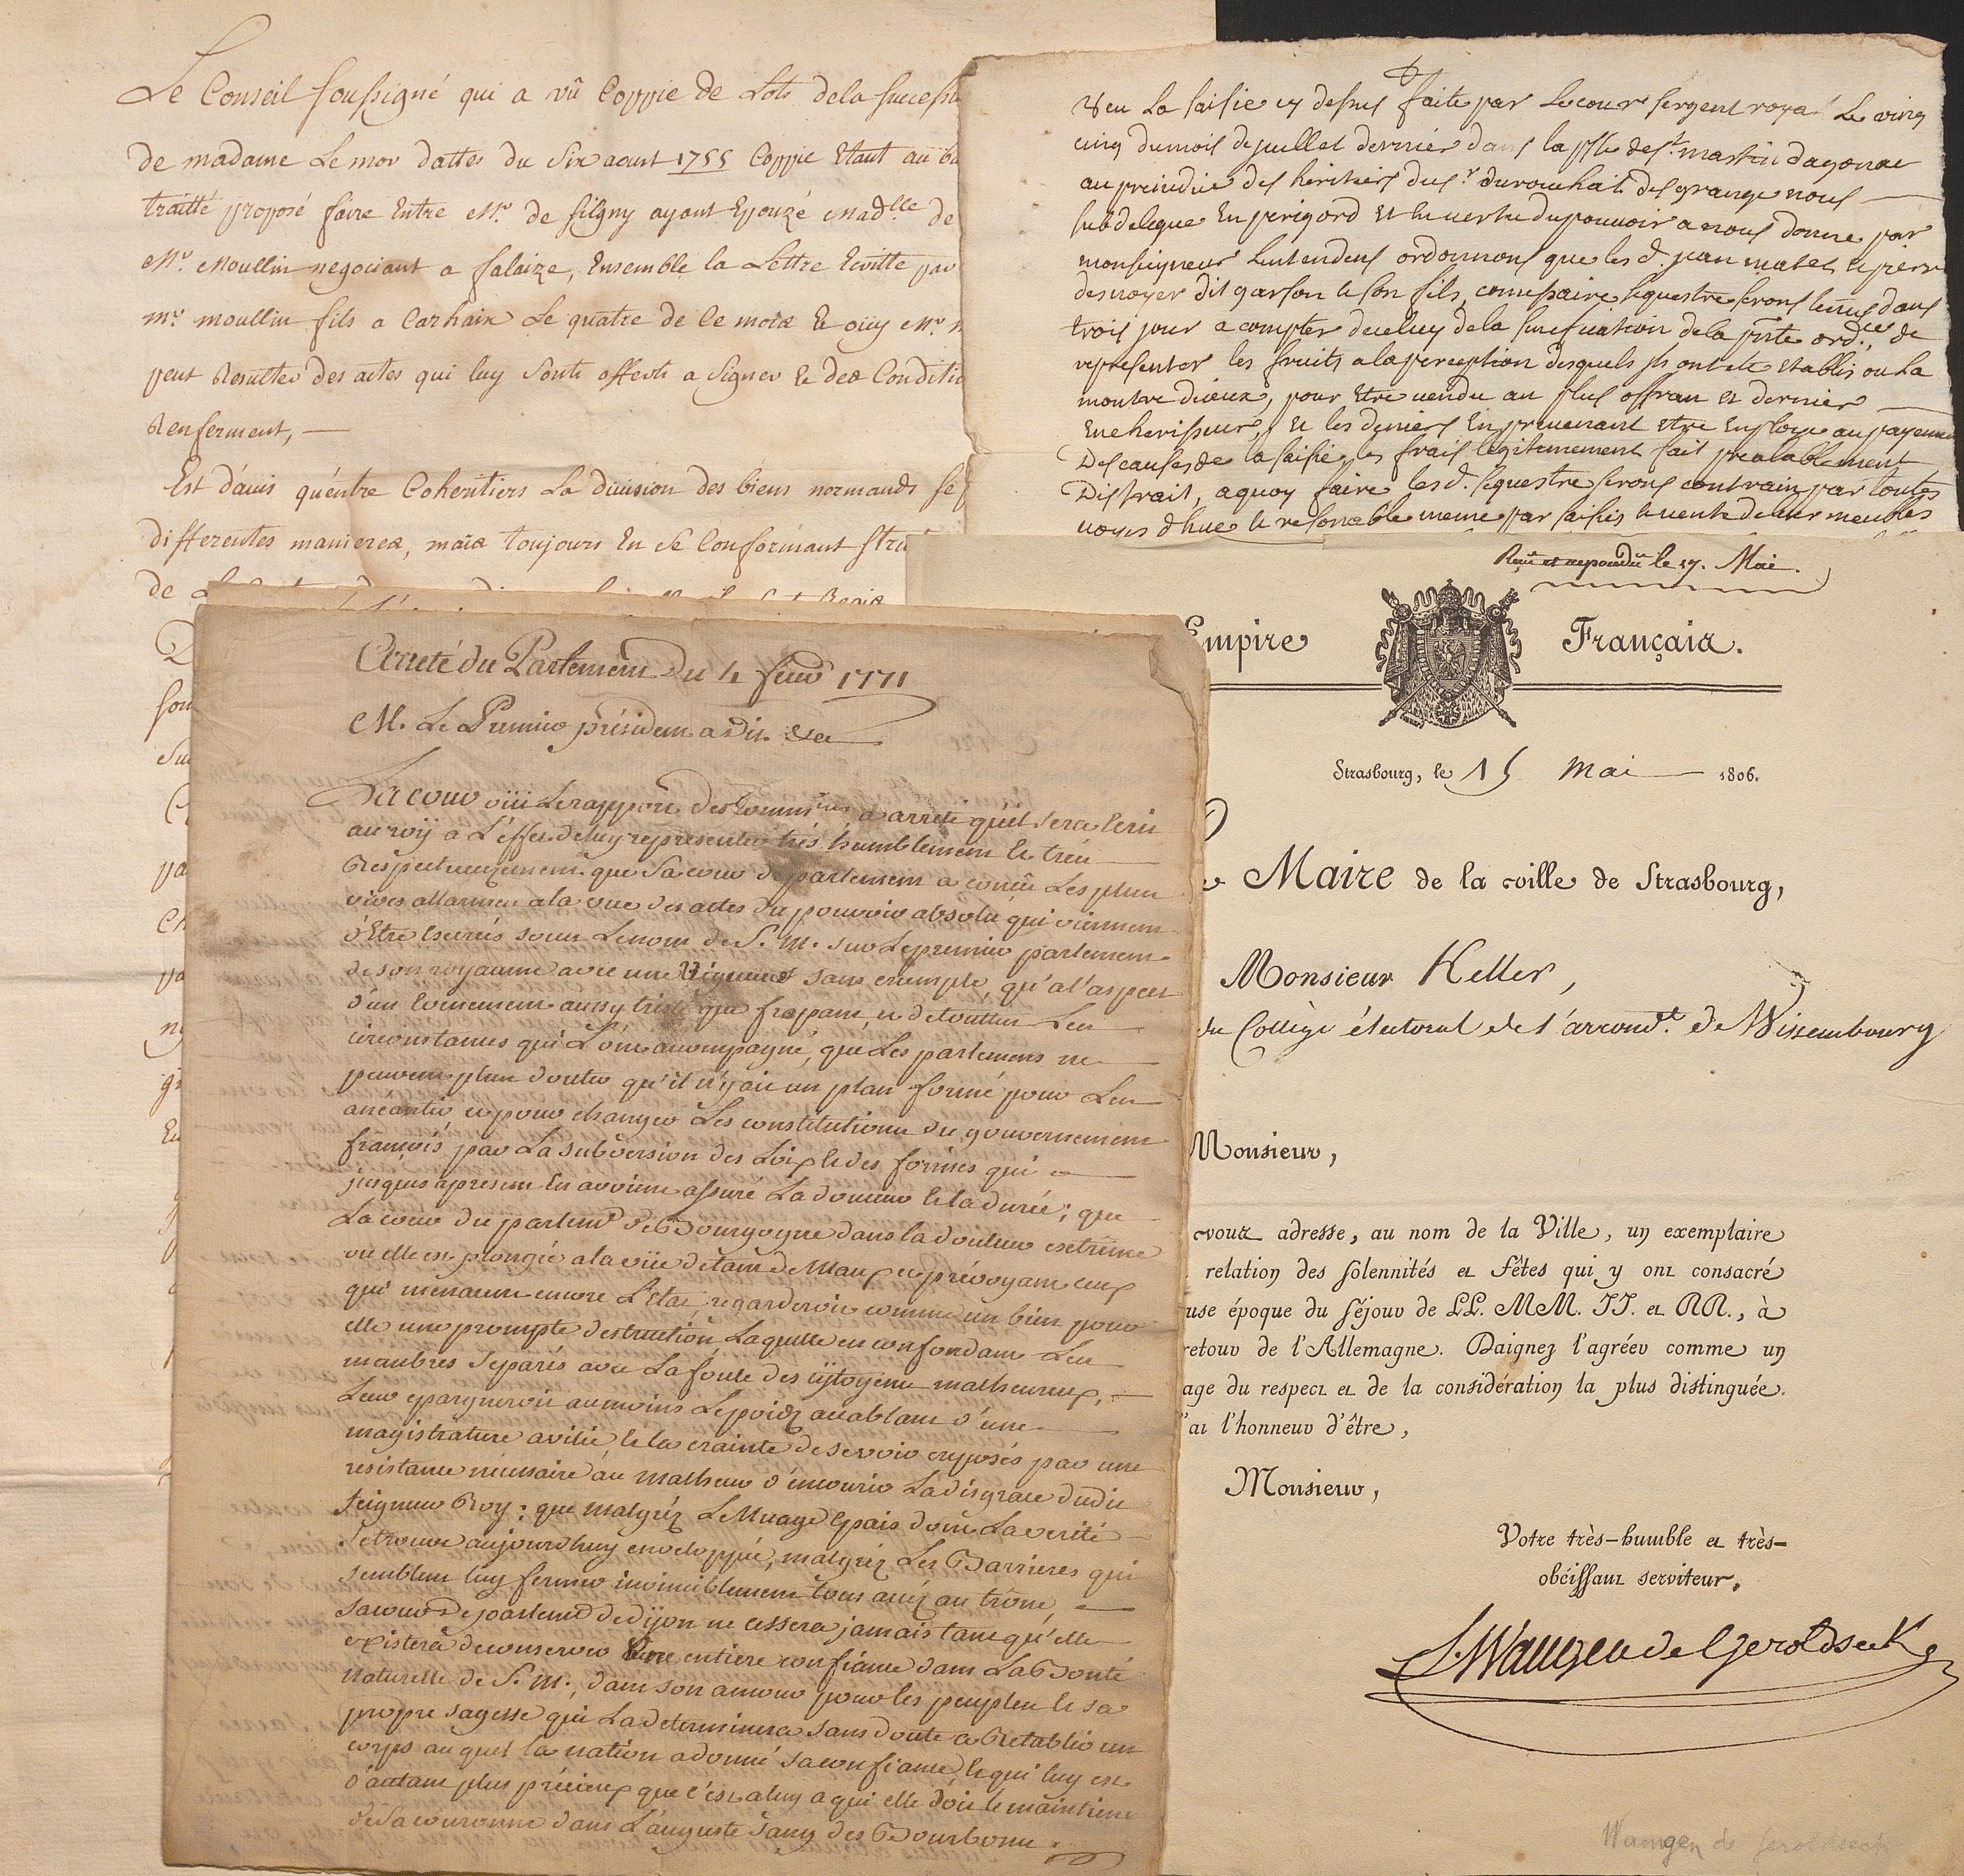 Le Conseil soussigné qui a vû Coppie de Lots dela Success
de madame Le mor dattés du Six aoust 1755 Coppie Etant au ba
traitté proposé faire Entre Mr. de siligny ayant Epouzé Madlle de
Mr. Moullin negociant a falaize, Ensemble la Lettre Ecritte par
mr. moullin fils a Carhaix Le quatre de Ce mois Et oüy Mr.
peut Resulter des actes qui luy Sonts offerts a Signer Et des Conditi
Renferment,
Est d'auis qu'entre Coheritiers La diuision des biens normands se
differentes manieres, mais toujours En Se Conformant stri
de
Veu La saisie cy dessus faite par Lecour sergent royal Le ving
cinq du mois de juillet dernier dans la psse de st. martin dagonac
au preiudice des heritiers du sr. durouchail desgrange nous
subdelegue En perigord Et En vertu du pouvoir a nous donne par
monseigneur Lintendent ordonnons que les d. jean matet et pierr
desnoyer dit garson le son fils, comissaire sequestre seront tenus dans
trois jour a compter deceluy dela sinification dela pnte ordce. de
representer les fruits ala perception desquels ils ont ete etablis ou La
montre diceux, pour Etre vendu au plus offran et dernier
Encherisseur, Et les deniers En provenant etre Employe au payeme
Des causes de la saisie, les frais legitimement fait prealablement
Distrait, a quoy faire les d. sequestre seront contrain par toutes
voyes dhue et resonable meme par saisie et vente de leur meubles
Reçu et repondu le 17. Mai.
Empire Français.
Strasbourg, le 15 Mai 1806.
Maire de la ville de Strasbourg,
Monsieur Keller,
du Collège électoral de l'arrondt. de Wissembourg
Monsieur,
vous adresse, au nom de la Ville, un exemplaire
relation des solennités et fêtes qui y ont consacré
use époque du séjour de LL. MM. II. et RR., à
retour de l'Allemagne. Daignez l'agréer comme un
age du respect et de la considération la plus distinguée.
'ai l'honneur d'être,
Monsieur,
Votre très-humble et très-
obéissant serviteur,
Wangen de Geroldseck
Wangen de Geroldseck
Arreté du Parlement Du 4 feur 1771
M. Le Premier président a Dit &ca
La cour oüi Le rapport des Commres a arrêté qu'il sera Ecrit
au roÿ a L'effet de luy representer très humblement Et très
Respectueusement que Sa cour de parlement a conçu Les plus
vives allarmes a la vue des actes du pouvoir absolu qui viennent
d'Etre Exercés sous Le nom de S. M. sur Le premier parlement
de son royaume avec une Rigueur sans exemple, qu'a l'aspect
d'un Evenement aussy triste que frapant, et de touttes Les
circonstances qui L'ont accompagné, que Les parlemens ne
peuvent plus douter qu'il n'y ait un plan formé pour Les
anéantir, et pour changer Les constitutions du gouvernement
françois par La subversion des Loix Et des formes qui
jusques apresent En avoient assuré La douceur Et la durée; que
La cour du parlemt de Bourgogne dans la douleur extrême
ou elle est plongée a la vüe de tant de Maux et prévoyant ceux
qui menacent encore L'Etat, regarderoit comme un bien pour
elle une prompte destruction Laquelle en confondant Les
membres separés avec La foule des cytoyens malheureux,
Leur epargneroit au moins Le poids accablant d'une
magistrature avilie, Et la crainte de se voir exposés par une
resistance nécessaire au malheur d'encourir La disgrace dudit
seigneur Roy; que malgréz Le Nuage Epais dont La verité
se trouve aujourdhuy enveloppée, malgréz Les Barrieres qui
semblent luy fermer invinciblement tous accéz au trône,
sa cour de parlemt de Dijon ne cessera jamais tant qu'elle
existera de conserver Une entière confiance dans La Bonté
naturelle de S. M., dans son amour pour les peuples Et sa
propre sagesse qui La determinera sans doute a Retablir un
corps auquel la nation a donné sa confiance, Et qui luy est
d'autant plus précieux que c'est a luy a qui elle doit le maintient
de Sa couronne dans L'auguste Sang des Bourbons.